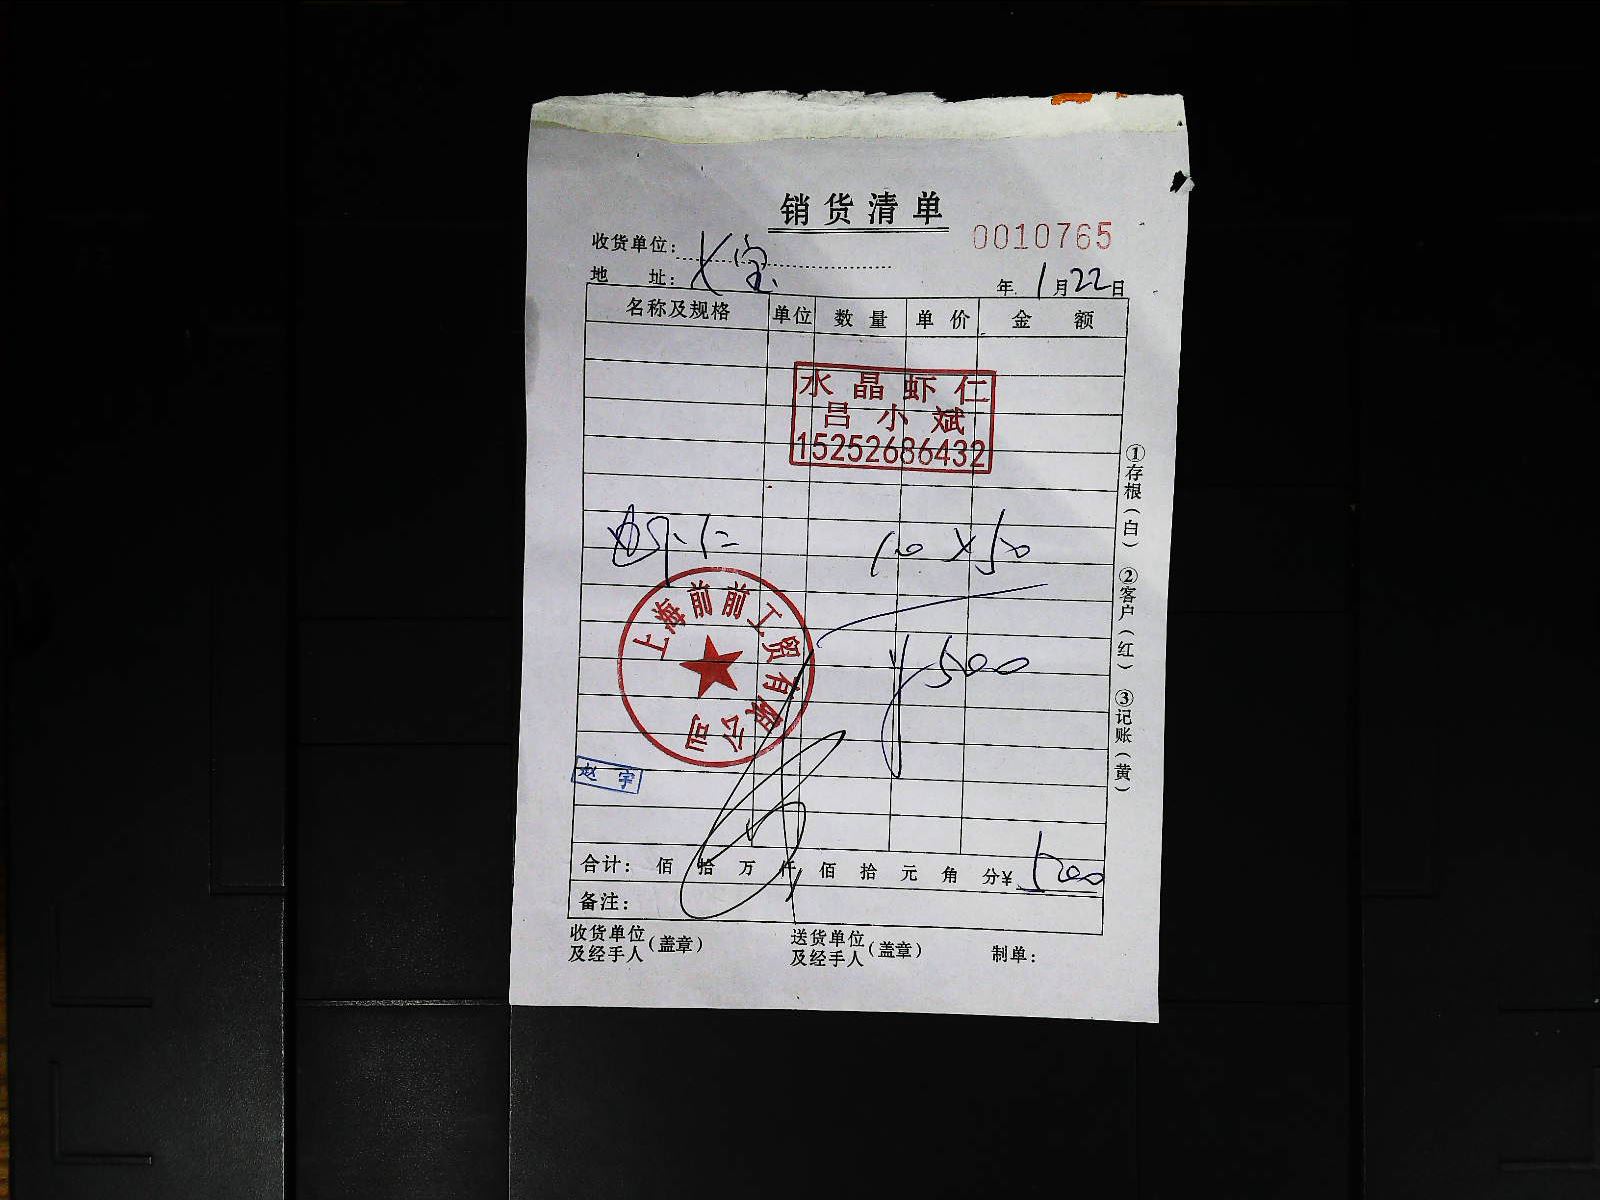 销货清单
0010765
收货单位：
地 址：
年 1月22日
名称及规格 单位 数量 单价 金额
水晶虾仁
吕小斌
15252686432
虾仁 10×50
¥500
上海前前工贸有限公司
赵宇
合计： 佰 拾 万 仟 佰 拾 元 角 分¥ 500
备注：
收货单位及经手人（盖章） 送货单位及经手人（盖章） 制单：
①存根（白） ②客户（红） ③记账（黄）